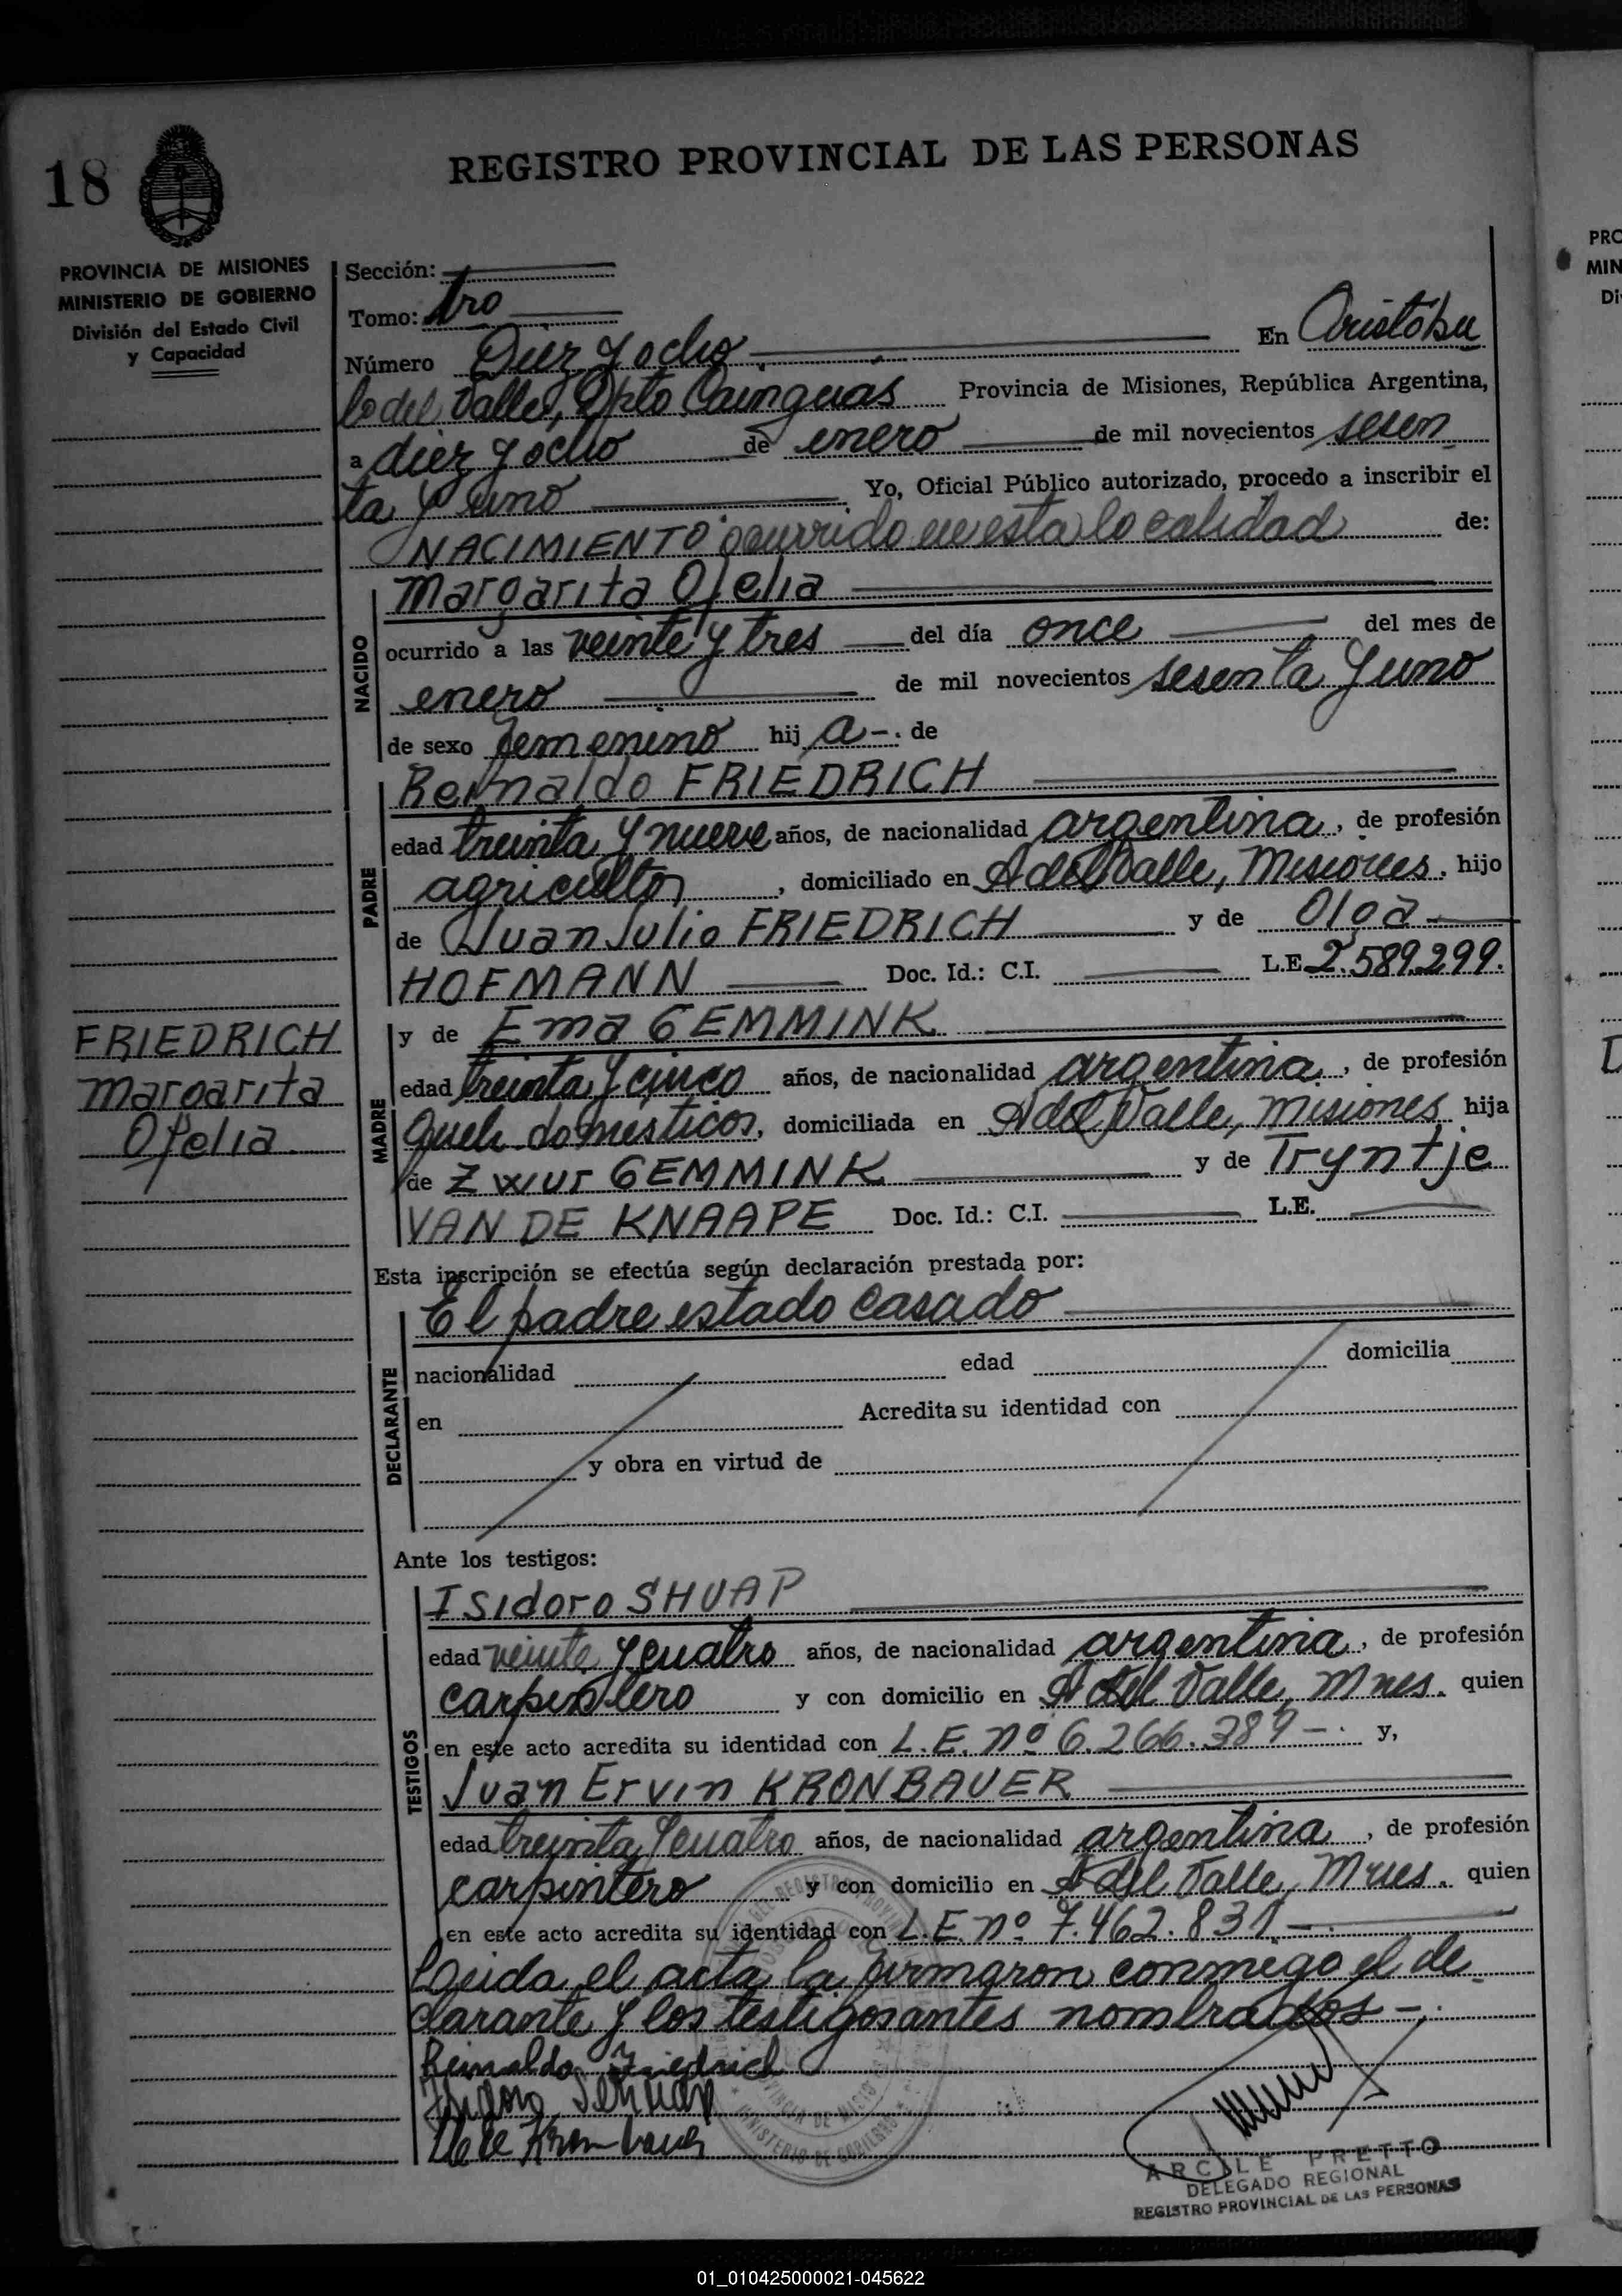 18
REGISTRO PROVINCIAL DE LAS PERSONAS
PROVINCIA DE MISIONES
MINISTERIO DE GOBIERNO
División del Estado Civil
y Capacidad
Sección:
Tomo: 1ro
Número Diez y ocho En Aristóbu
lo del Valle, Dpto Cainguas Provincia de Misiones, República Argentina,
a diez y ocho de enero de mil novecientos sesen
ta y uno Yo, Oficial Público autorizado, procedo a inscribir el
NACIMIENTO ocurrido en esta localidad de:
NACIDO
Margarita Ofelia
ocurrido a las veinte y tres del día once del mes de
enero de mil novecientos sesenta y uno
de sexo femenino hij a-. de
PADRE
Reinaldo FRIEDRICH
edad treinta y nueve años, de nacionalidad argentina, de profesión
agricultor, domiciliado en A del Valle, Misiones. hijo
de Juan Julio FRIEDRICH y de Olga
HOFMANN Doc. Id.: C.I. L.E. 2.589.299.
MADRE
y de Ema GEMMINK
edad treinta y cinco años, de nacionalidad argentina, de profesión
Queh. domésticos, domiciliada en A del Valle, Misiones hija
de Zwur GEMMINK y de Tryntje
VAN DE KNAAPE Doc. Id.: C.I. L.E.
FRIEDRICH
Margarita
Ofelia
Esta inscripción se efectúa según declaración prestada por:
DECLARANTE
El padre estado casado
nacionalidad edad domicilia
en Acredita su identidad con
y obra en virtud de
Ante los testigos:
TESTIGOS
Isidoro SHUAP
edad veinte y cuatro años, de nacionalidad argentina, de profesión
carpintero y con domicilio en A del Valle, Mnes. quien
en este acto acredita su identidad con L.E. nº 6.266.389-. y,
Juan Ervin KRONBAUER
edad treinta y cuatro años, de nacionalidad argentina, de profesión
carpintero y con domicilio en A del Valle, Mnes. quien
en este acto acredita su identidad con L.E. nº 7.462.831.-
Leída el acta la firmaron conmigo el de-
clarante y los testigos antes nombrados-.
Reinaldo Friedrich
ARCILE PRETTO
DELEGADO REGIONAL
REGISTRO PROVINCIAL DE LAS PERSONAS
PRO
MIN
Di
01_010425000021-045622